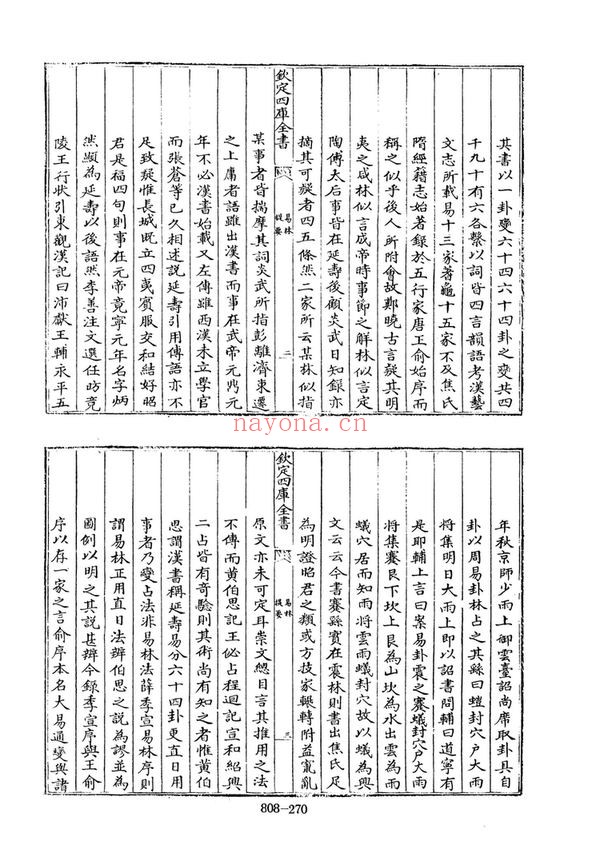 其書以一卦變六十四六十四卦之變共四
千九十有六各繫以詞皆四言韻語考漢藝
文志所載易十三家蓍龜十五家不及焦氏
隋經籍志始著錄於五行家唐王俞始序而
稱之似乎後人所附會故鄭曉古言疑其明
夷之咸林似言成帝時事節之解林似言定
陶傅太后事皆在延壽後顧炎武日知錄亦
摘其可疑者四五條然二家所云某林似指
欽定四庫全書
易林
提要
二
某事者皆揣摩其詞炎武所指彭離濟東遷
之上庸者語雖出漢書而事在武帝元鼎元
年不必漢書始載又左傳雖西漢未立學官
而張蒼等已久相述說延壽引用傳語亦不
足致疑惟長城既立四夷賓服交和結好昭
君是福四句則事在元帝竟寧元年名字炳
然顯為延壽以後語然李善注文選任昉竟
陵王行狀引東觀漢記曰沛獻王輔永平五
年秋京師少雨上御雲臺詔尚席取卦具自
卦以周易卦林占之其繇曰螘封穴户大雨
將集明日大雨上即以詔書問輔曰道寧有
是耶輔上言曰案易卦震之蹇蟻封穴户大雨
將集蹇艮下坎上艮為山坎為水出雲為雨
蟻穴居而知雨將雲雨蟻封穴故以蟻為興
文云云今書蹇繇實在震林則書出焦氏足
為明證昭君之類或方技家輾轉附益竄亂
欽定四庫全書
易林
提要
三
原文亦未可定耳崇文總目言其推用之法
不傳而黃伯思記王佖占程迥記宣和紹興
二占皆有奇驗則其術尚有知之者惟黃伯
思謂漢書稱延壽易分六十四卦更直日用
事者乃變占法非易林法薛季宣易林序則
謂易林正用直日法辨伯思之說為謬並為
圖例以明之其說甚辨今錄季宣序與王俞
序以存一家之言俞序本名大易通變與諸
808-270
nayona.cn